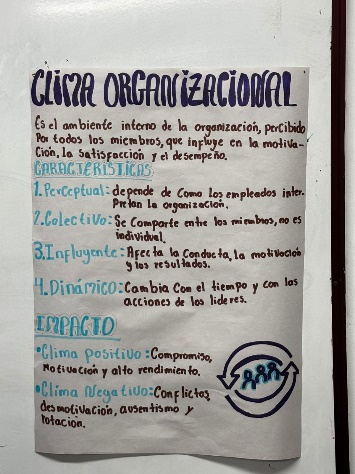 CLIMA ORGANIZACIONAL
Es el ambiente interno de la organización, percibido
Por todos los miembros, que influye en la motiva-
ción, la satisfacción y el desempeño.
CARACTERÍSTICAS
1. Perceptual: depende de como los empleados inter-
Pretan la organización.
2. Colectivo: Se comparte entre los miembros, no es
individual.
3. Influyente: Afecta la conducta, la motivación
y los resultados.
4. Dinámico: Cambia con el tiempo y con las
acciones de los lideres.
IMPACTO
•Clima positivo: Compromiso,
motivación y alto rendimiento.
•Clima Negativo: Conflictos,
desmotivación, ausentismo y
rotación.